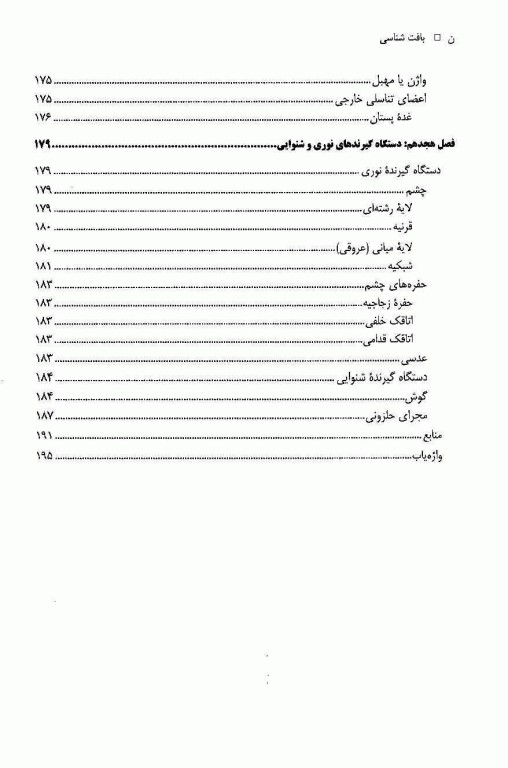 ن □ بافت شناسی
واژن یا مهبل ........ ۱۷۵
اعضای تناسلی خارجی ........ ۱۷۵
غدهٔ پستان ........ ۱۷۶
فصل هجدهم: دستگاه گیرندهای نوری و شنوایی ........ ۱۷۹
دستگاه گیرندهٔ نوری ........ ۱۷۹
چشم ........ ۱۷۹
لایهٔ رشته‌ای ........ ۱۷۹
قرنیه ........ ۱۸۰
لایهٔ میانی (عروقی) ........ ۱۸۰
شبکیه ........ ۱۸۱
حفره‌های چشم ........ ۱۸۳
حفرهٔ زجاجیه ........ ۱۸۳
اتاقک خلفی ........ ۱۸۳
اتاقک قدامی ........ ۱۸۳
عدسی ........ ۱۸۳
دستگاه گیرندهٔ شنوایی ........ ۱۸۴
گوش ........ ۱۸۴
مجرای حلزونی ........ ۱۸۷
منابع ........ ۱۹۱
واژه‌یاب ........ ۱۹۵